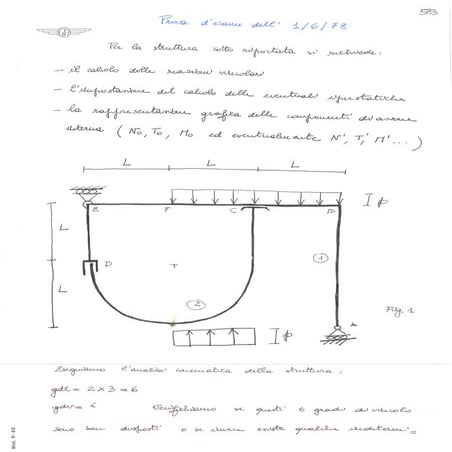 Prova d'esame dell' 1/6/78
583
Per la struttura sotto riportata si richiede:
— il calcolo delle reazioni vincolari
— l'impostazione del calcolo delle eventuali iperstatiche
— la rappresentazione grafica delle componenti di azione
interna ( No, To, Mo ed eventualmente N', T', M' ... )
L L L
p
E F C B
L
D T 1
L
2
A
Fig. 1
p
Eseguiamo l'analisi cinematica della struttura:
gdl = 2 x 3 = 6
gdv = Verifichiamo se questi 6 gradi di vincolo
sono ben disposti o se invece esiste qualche
Mod. F-01